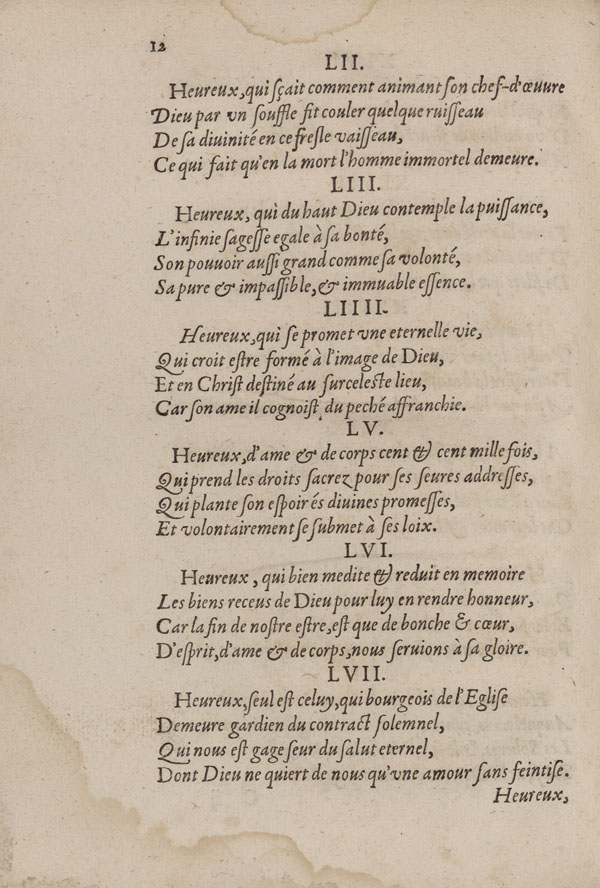 12
LII.
Heureux, qui sçait comment animant son chef-d'œuure
Dieu par vn souffle fit couler quelque ruisseau
De sa diuinité en ce fresle vaisseau,
Ce qui fait qu'en la mort l'homme immortel demeure.
LIII.
Heureux, qui du haut Dieu contemple la puissance,
L'infinie sagesse egale à sa bonté,
Son pouuoir aussi grand comme sa volonté,
Sa pure & impassible, & immuable essence.
LIIII.
Heureux, qui se promet vne eternelle vie,
Qui croit estre formé à l'image de Dieu,
Et en Christ destiné au surceleste lieu,
Car son ame il cognoist du peché affranchie.
LV.
Heureux, d'ame & de corps cent & cent mille fois,
Qui prend les droits sacrez pour ses seures addresses,
Qui plante son espoir és diuines promesses,
Et volontairement se submet à ses loix.
LVI.
Heureux, qui bien medite & reduit en memoire
Les biens receus de Dieu pour luy en rendre honneur,
Car la fin de nostre estre, est que de bonche & cœur,
D'esprit, d'ame & de corps, nous seruions à sa gloire.
LVII.
Heureux, seul est celuy, qui bourgeois de l'Eglise
Demeure gardien du contract solemnel,
Qui nous est gage seur du salut eternel,
Dont Dieu ne quiert de nous qu'vne amour sans feintise.
Heureux,